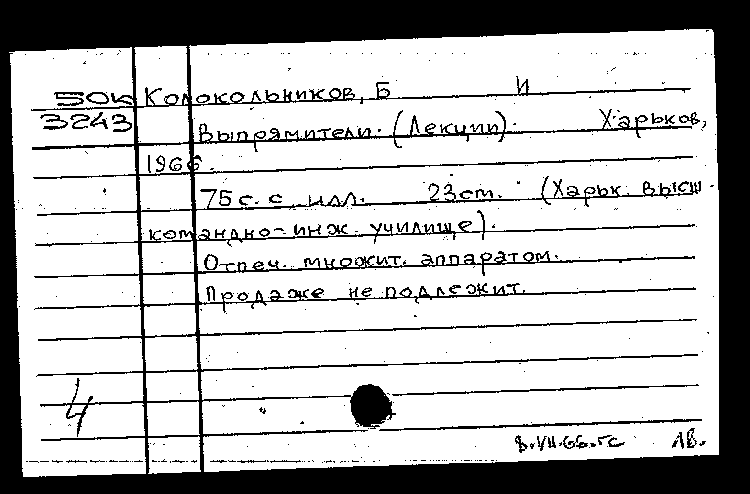 50к Колокольников, Б И
3243 Выпрямители. (Лекции). Харьков,
1966.
75 с. с илл. 23 см. (Харьк. высш.
командно-инж. училище).
Отпеч. множит. аппаратом.
Продаже не подлежит.
4
8.VII.66. гс ЛВ.